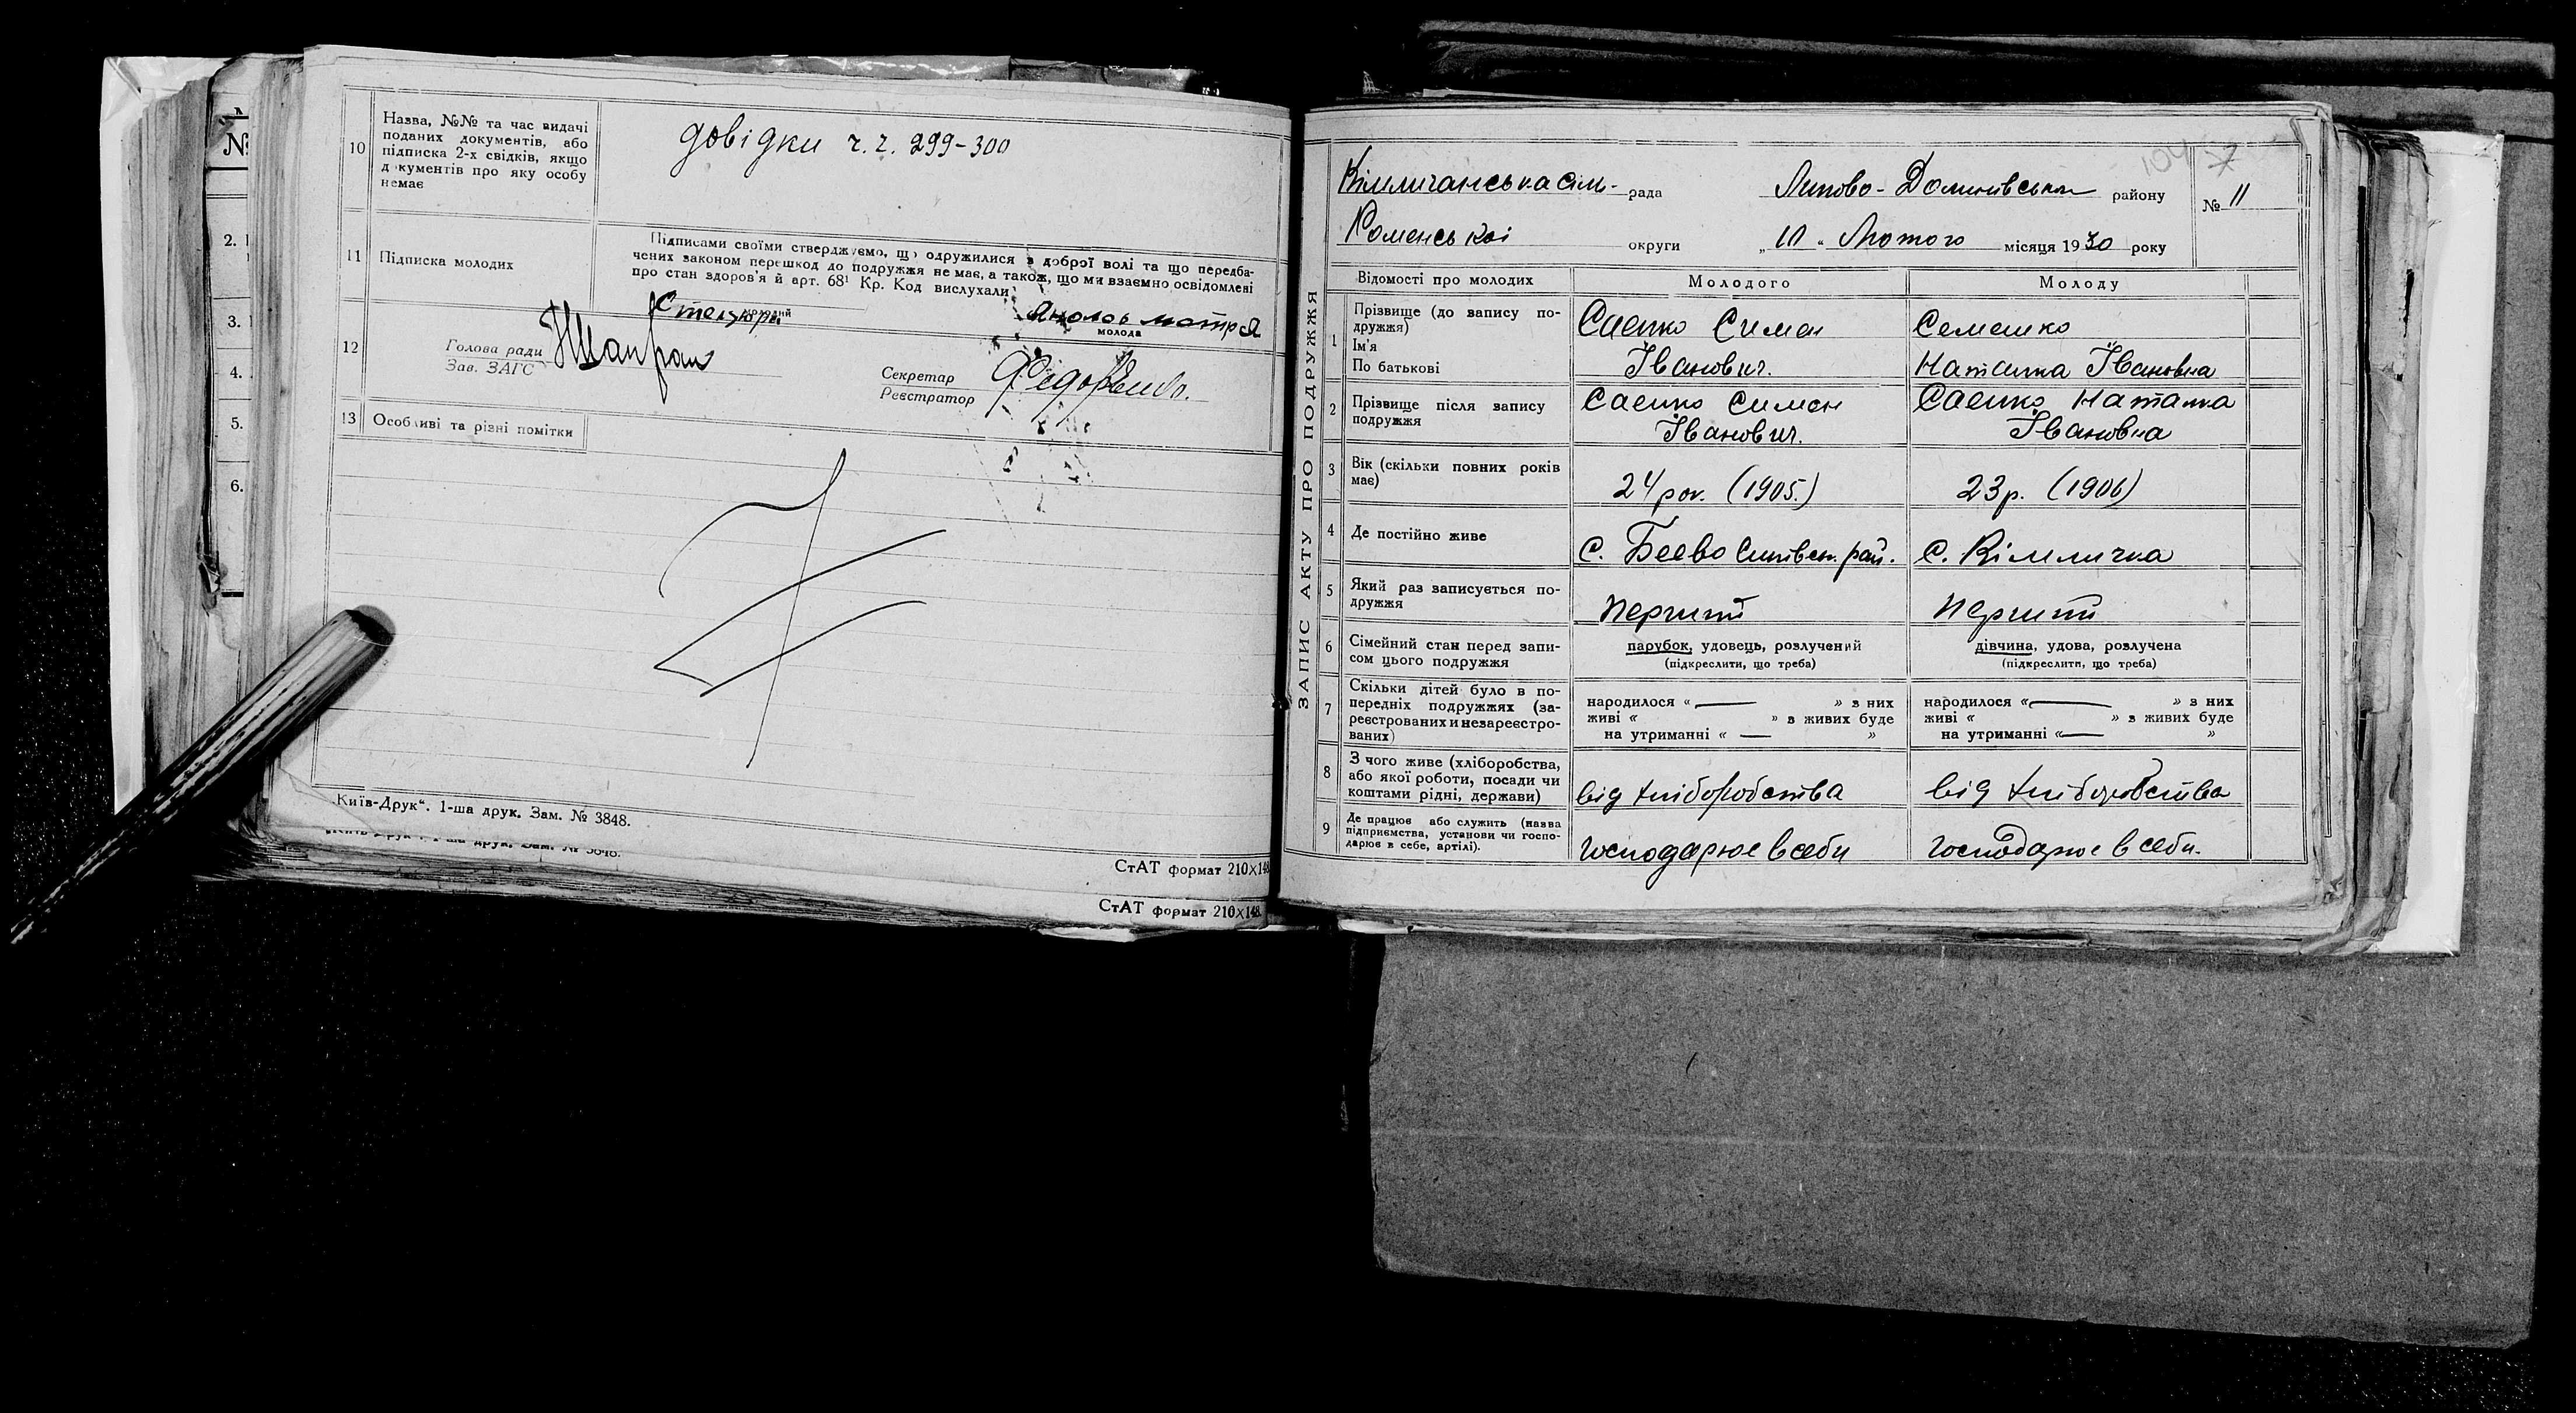 10 Назва, №№ та час видачі
поданих документів, або
підписка 2-х свідків, якщо
документів про яку особу
немає
довідки ч.ч. 299-300
11 Підписка молодих
Підписами своїми стверджуємо, що одружилися з доброї волі та що передба-
чених законом перешкод до подружжя не має, а також, що ми взаємно освідомлені
про стан здоров'я й арт. 68¹ Кр. Код вислухали
Стецюри
молодий
молода
12
Голова ради
Зав. ЗАГС
Секретар
Реєстратор
Федоренко.
13 Особливі та різні помітки
„Київ-Друк“. 1-ша друк. Зам. № 3848.
СтАТ формат 210×148
СтАТ формат 210×148.
№
2.
3.
4.
5.
6.
104
рада
району
№ 11
Роменської округи
„10“ Лютого місяця 1930 року
ЗАПИС АКТУ ПРО ПОДРУЖЖЯ
Відомості про молодих Молодого Молоду
1 Прізвище (до запису по-
дружжя)
Ім'я
По батькові
Саєнко Симон
Іванович.
Семешко
Наталка Івановна
2 Прізвище після запису
подружжя
Саєнко Симон
Іванович.
Саєнко Наталка
Івановна
3 Вік (скільки повних років
має)
24 рок. (1905.) 23 р. (1906)
4 Де постійно живе
с. Беево рай. с. Кімличка
5 Який раз записується по-
дружжя
перший перший
6 Сімейний стан перед запи-
сом цього подружжя
парубок, удовець, розлучений
(підкреслити, що треба)
дівчина, удова, розлучена
(підкреслити, що треба)
7 Скільки дітей було в по-
передніх подружжях (за-
реєстрованих и незареєстро-
ваних)
народилося « — » з них
живі « » з живих буде
на утриманні « — »
народилося « — » з них
живі « » з живих буде
на утриманні « — »
8 З чого живе (хліборобства,
або якої роботи, посади чи
коштами рідні, держави)
від хліборобства від хліборобства
9 Де працює або служить (назва
підприємства, установи чи госпо-
дарює в себе, артілі).
господарює в себи господарює в себи.